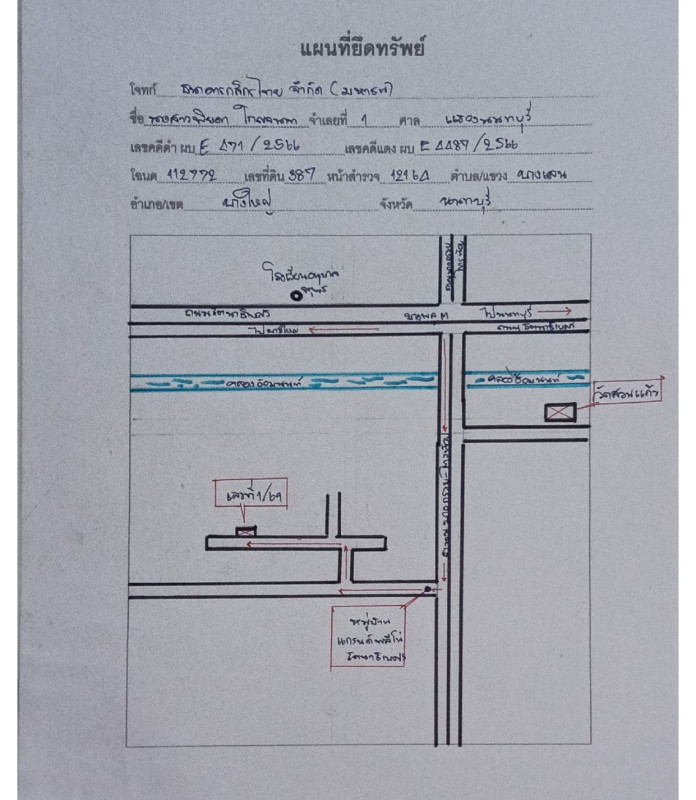 แผนที่ยึดทรัพย์
โจทก์ ธนาคารกสิกรไทย จำกัด (มหาชน)
ชื่อ นางสาว จำเลยที่ 1 ศาล แขวงนนทบุรี
เลขคดีดำ ผบ E 471/2566 เลขคดีแดง ผบ E 4487/2566
โฉนด 112772 เลขที่ดิน 387 หน้าสำรวจ 12164 ตำบล/แขวง บางเลน
อำเภอ/เขต บางใหญ่ จังหวัด นนทบุรี
โรงเรียนอนุบาล
ถนนรัตนาธิเบศร์
ไปนนทบุรี
ไปบางใหญ่
ถนนรัตนาธิเบศร์
คลองอ้อมนนท์
คลองอ้อมนนท์
วัดสวนแก้ว
ถนนบางกรวย-ไทรน้อย
เลขที่ 1/69
หมู่บ้าน
รัตนาธิเบศร์